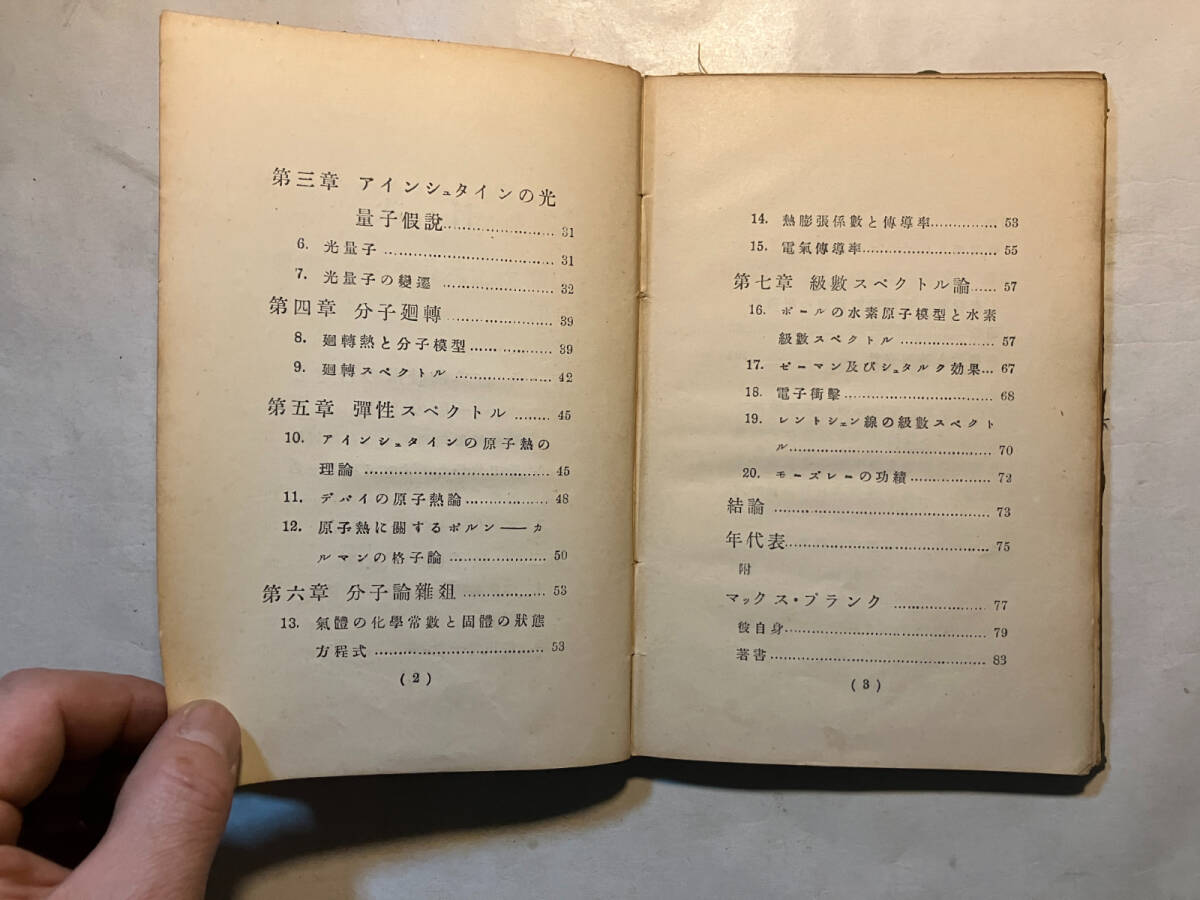 第三章 アインシュタインの光
量子假說……………… 31
6. 光量子……………………… 31
7. 光量子の變遷……………… 32
第四章 分子廻轉……………… 39
8. 廻轉熱と分子模型…………… 39
9. 廻轉スペクトル……………… 42
第五章 彈性スペクトル……… 45
10. アインシュタインの原子熱の
理論…………………………… 45
11. デバイの原子熱論…………… 48
12. 原子熱に關するボルン――カ
ルマンの格子論……………… 50
第六章 分子論雜爼…………… 53
13. 氣體の化學常數と固體の狀態
方程式………………………… 53
(2)
14. 熱膨張係數と傳導率………… 53
15. 電氣傳導率…………………… 55
第七章 級數スペクトル論…… 57
16. ボールの水素原子模型と水素
級數スペクトル……………… 57
17. ゼーマン及びシュタルク効果… 67
18. 電子衝擊……………………… 68
19. レントシェン線の級數スペクト
ル……………………………… 70
20. モーズレーの功績…………… 72
結論……………………………… 73
年代表…………………………… 75
附
マックス・プランク…………… 77
彼自身…………………………… 79
著書……………………………… 83
(3)